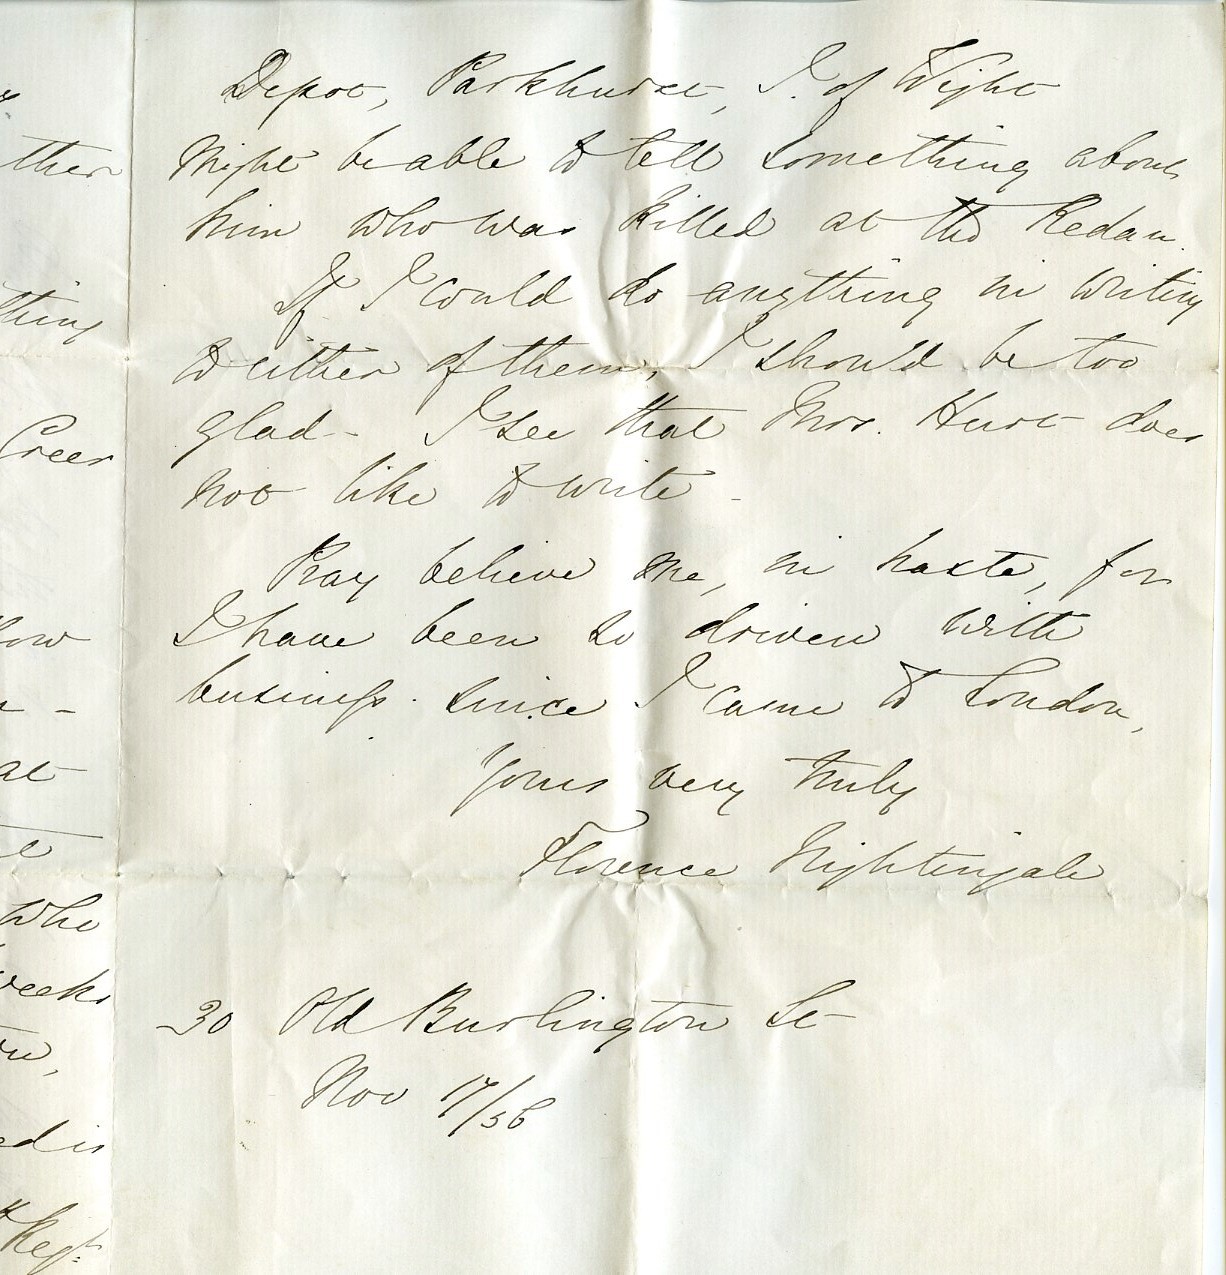 ther
thing
Creer
how
at
who
weeks
Regt.
Depot, Parkhurst, I. of Wight
might be able to tell something about
him who was killed at the Redan.
If I could do anything in writing
to either of them, I should be too
glad - I see that Mrs. Hurst does
not like to write -
Pray believe me, in haste, for
I have been so driven with
business since I came to London,
Yours very truly
Florence Nightingale
30 Old Burlington St
Nov 17/56